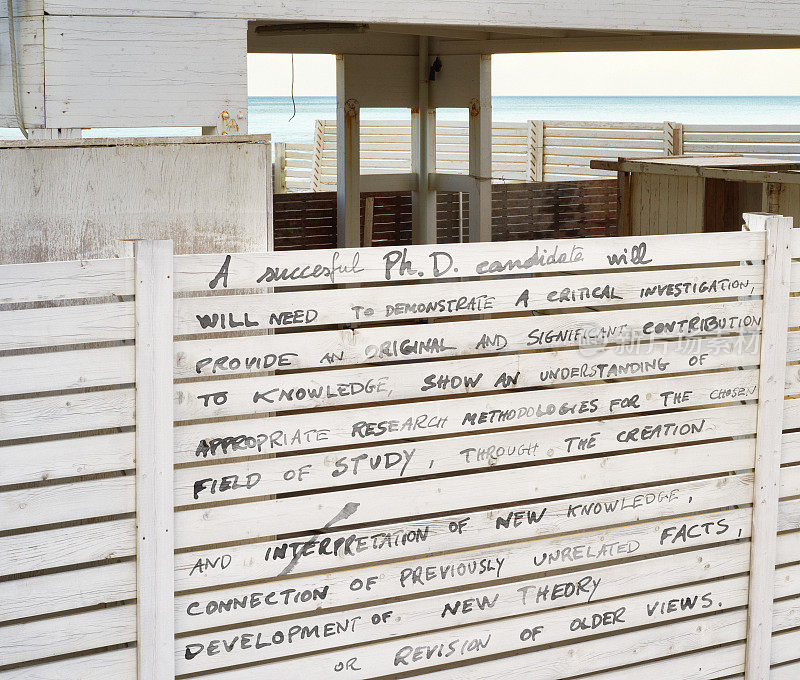 A succesful Ph.D. candidate will
WILL NEED TO DEMONSTRATE A CRITICAL INVESTIGATION,
PROVIDE AN ORIGINAL AND SIGNIFICANT CONTRIBUTION
TO KNOWLEDGE, SHOW AN UNDERSTANDING OF
APPROPRIATE RESEARCH METHODOLOGIES FOR THE CHOSEN
FIELD OF STUDY, THROUGH THE CREATION
AND INTERPRETATION OF NEW KNOWLEDGE,
CONNECTION OF PREVIOUSLY UNRELATED FACTS,
DEVELOPMENT OF. NEW THEORY
OR REVISION OF OLDER VIEWS.